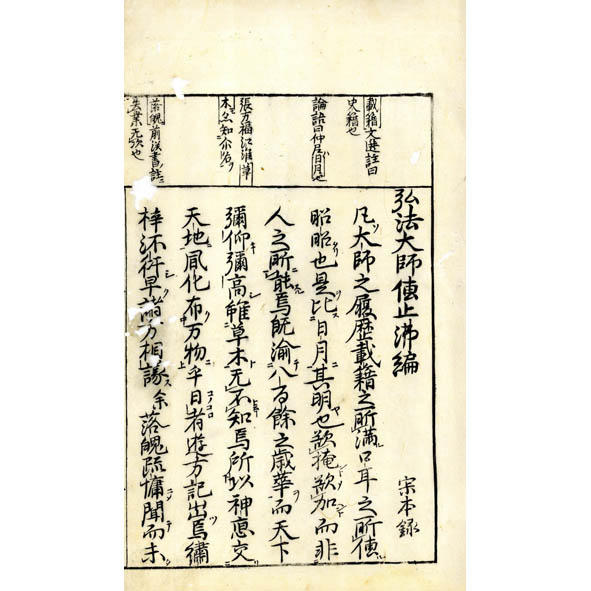 載籍文選註曰
史籍也
論語曰仲尼日月也
張万福江淮草
木亦知尓名
落魄前漢書註
失業无次也
弘法大師傳止沸編
宋本錄
凡大師之履歷載籍之所滿口耳之所傳
昭昭也是比日月其明也欲掩欲加而非
人之所能焉既渝八百餘之歲華而天下
彌仰彌高雖草木无不知焉所以神惠交
天地風化布万物乎日者遊方記出焉繡
梓沐行早諸方相讓余落魄疏慵聞而未